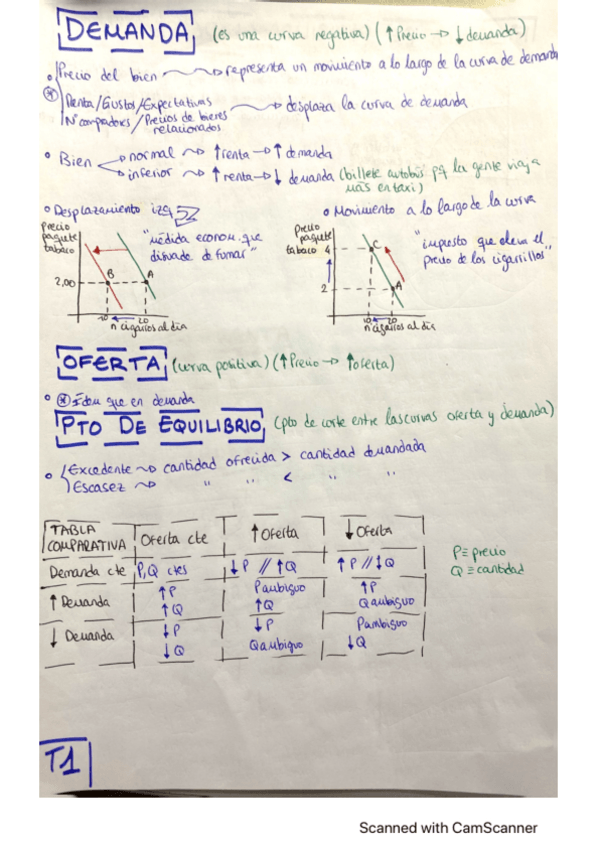 DEMANDA (es una curva negativa) (↑Precio → ↓demanda)
Precio del bien → representa un movimiento a lo largo de la curva de demanda
* Renta/Gustos/Expectativas
Nº compradores/Precios de bienes relacionados → desplaza la curva de demanda
Bien normal → ↑renta → ↑demanda
inferior → ↑renta → ↓ demanda (billete autobús pq la gente viaja
más en taxi)
Desplazamiento izq
Precio paquete tabaco
"medida econom. que
disuade de fumar"
B A
2,00
10 20
nº cigarros al día
Movimiento a lo largo de la curva
Precio paquete tabaco
"impuesto que eleva el
precio de los cigarrillos"
4 C
2 A
10 20
nº cigarros al día
OFERTA (curva positiva) (↑Precio → ↑oferta)
* Idem que en demanda
PTO DE EQUILIBRIO (pto de corte entre las curvas oferta y demanda)
Excedente → cantidad ofrecida > cantidad demandada
Escasez → " " < " "
TABLA COMPARATIVA Oferta cte ↑Oferta ↓Oferta
Demanda cte P,Q ctes ↓P // ↑Q ↑P // ↓Q
↑Demanda ↑P ↑Q P ambiguo ↑Q ↑P Q ambiguo
↓Demanda ↓P ↓Q ↓P Q ambiguo P ambiguo ↓Q
P≡precio
Q≡cantidad
T1
Scanned with CamScanner